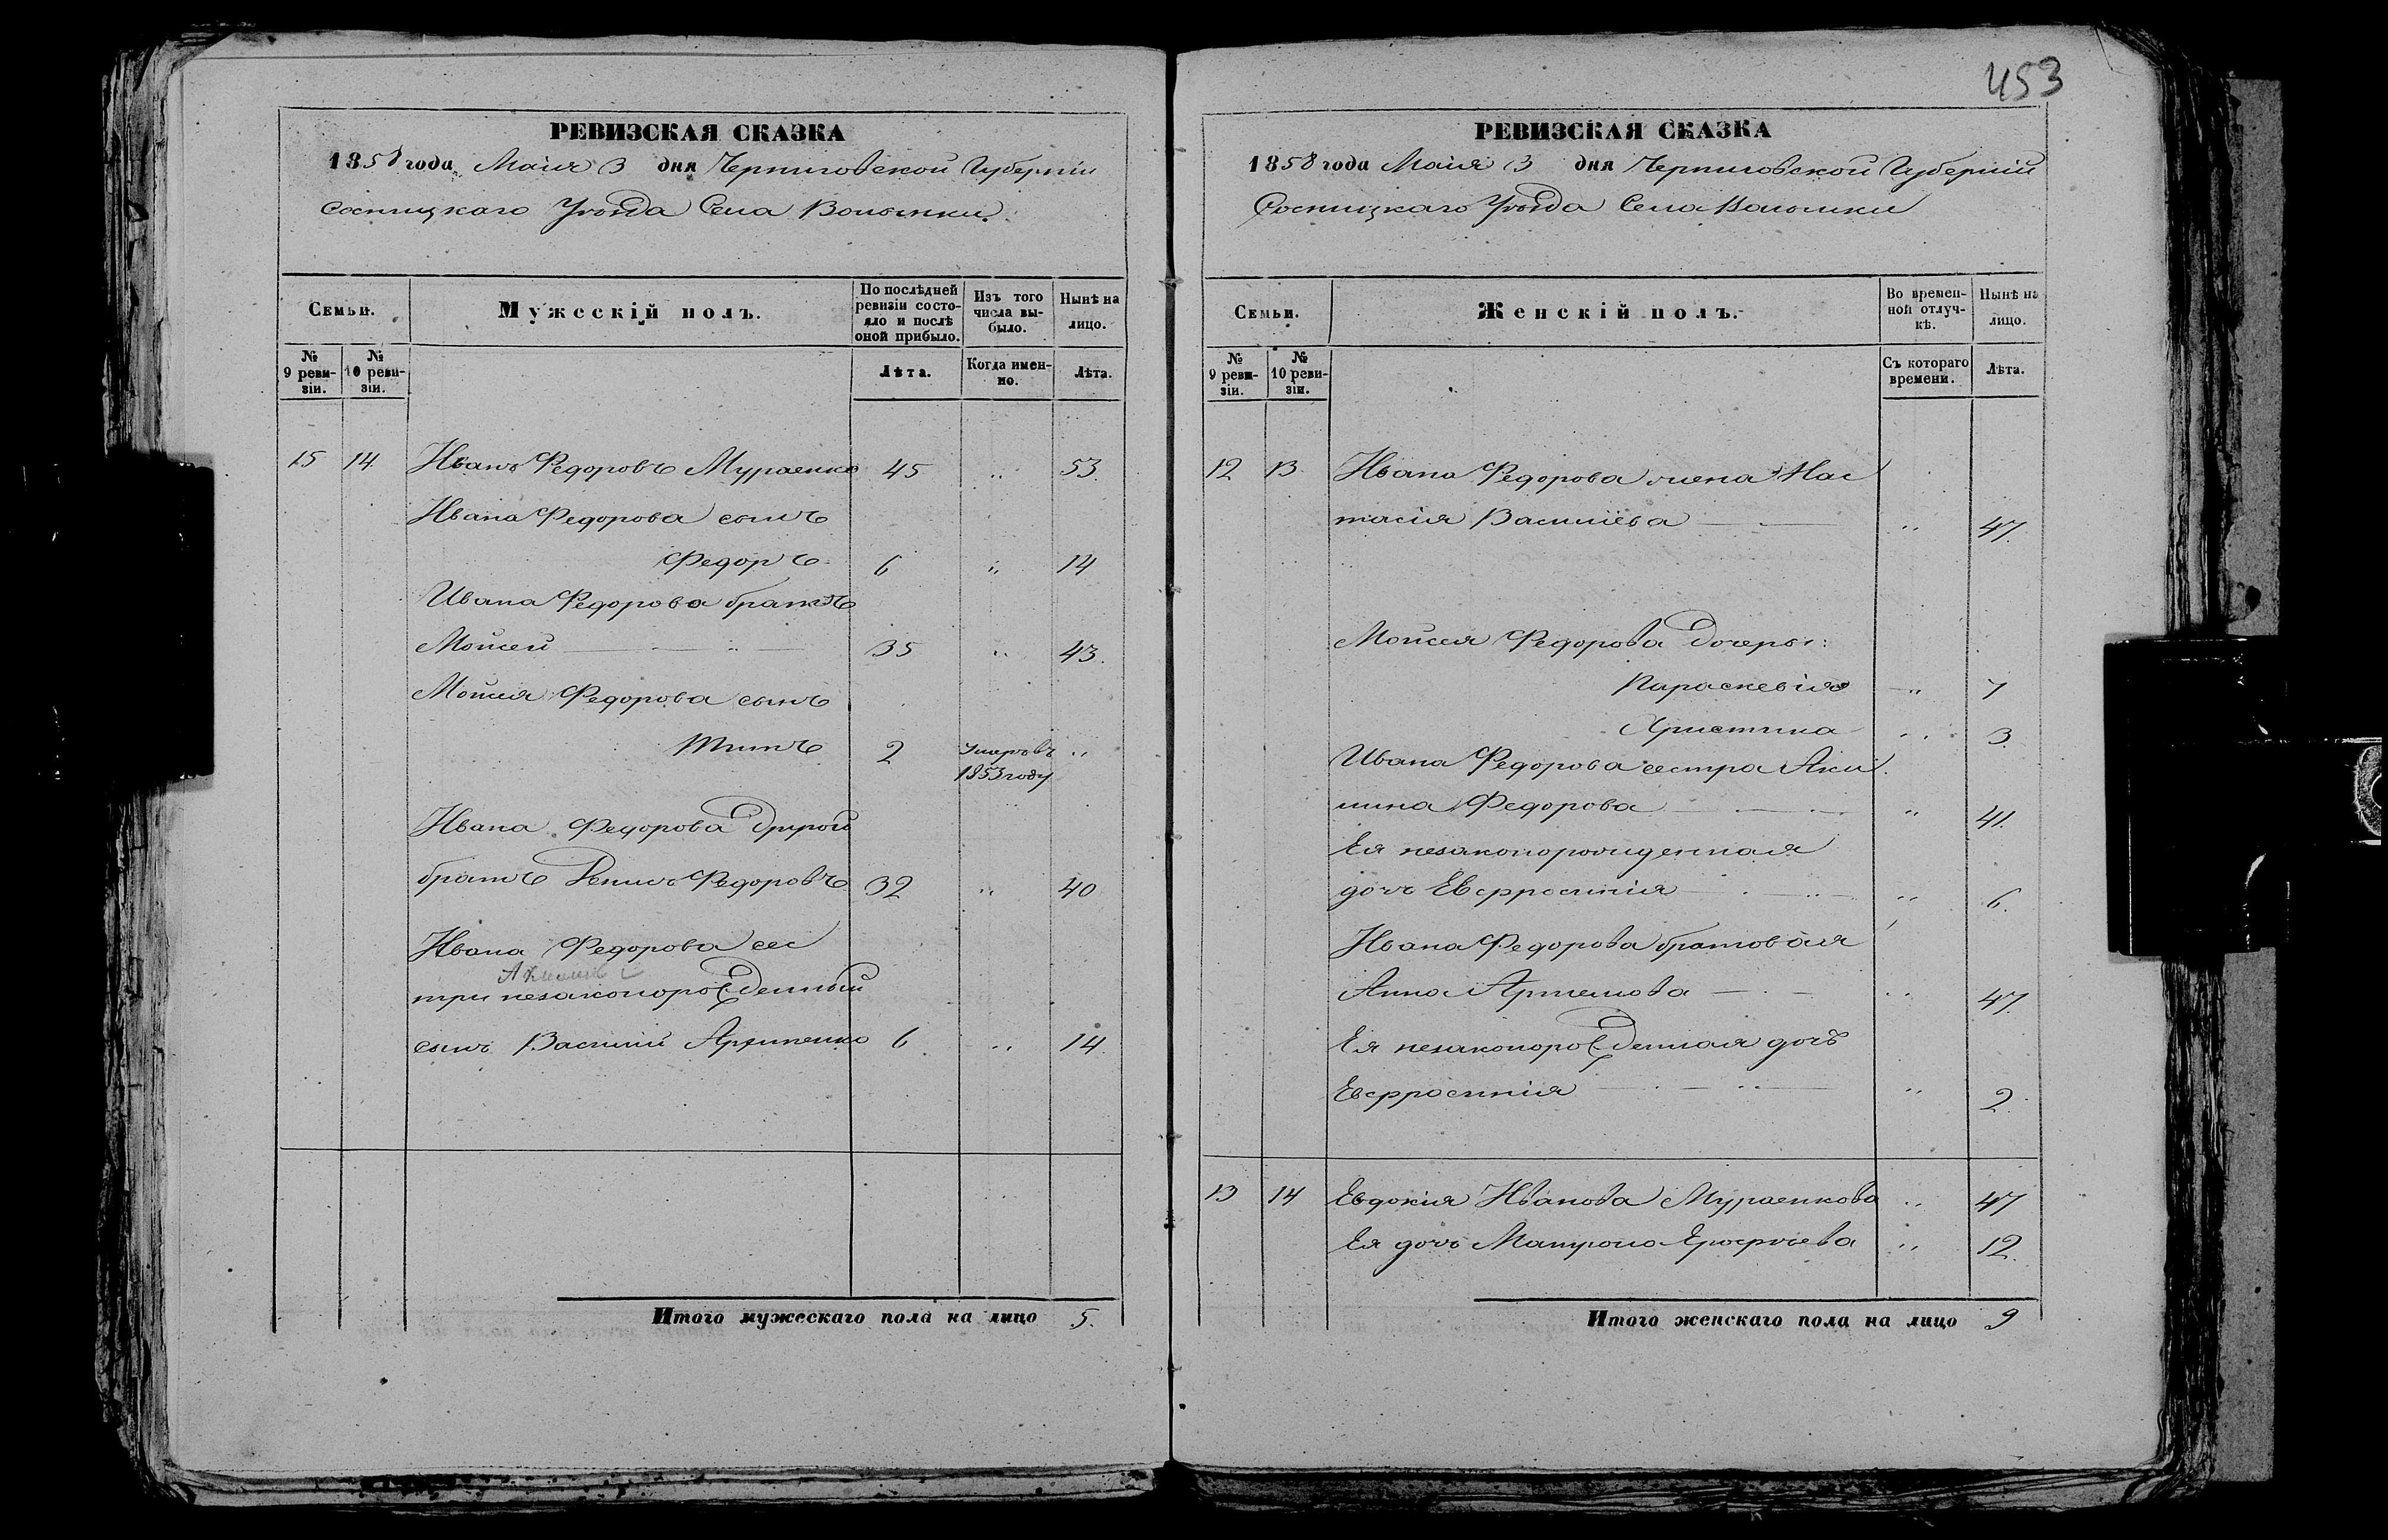 453
РЕВИЗСКАЯ СКАЗКА
1858 года Маія 3 дня Черниговской Губерніи
Сосницкаго Уѣзда Села Волынки.
Семьи.
Мужескій полъ.
По послѣдней ревизіи состояло и послѣ оной прибыло.
Изъ того числа выбыло.
Нынѣ на лицо.
№ 9 ревизіи.
№ 10 ревизіи.
Лѣта.
Когда именно.
Лѣта.
15 14 Иванъ Федоровъ Мураенко 45 „ 53.
Ивана Федорова сынъ
Федоръ 6 „ 14
Ивана Федорова братъ
Мойсей 35 „ 43.
Мойсея Федорова сынъ
Титъ 2 умеръ въ „
1853 году
Ивана Федорова другой
братъ Денисъ Федоровъ 32 „ 40
Ивана Федорова сес
тры незаконорожденный
сынъ Василий 6 „ 14
Итого мужескаго пола на лицо 5.
РЕВИЗСКАЯ СКАЗКА
1858 года Маія 3 дня Черниговской Губерніи
Сосницкаго Уѣзда Села Волынки
Семьи.
Женскій полъ.
Во временной отлучкѣ.
Нынѣ на лицо.
№ 9 ревизіи.
№ 10 ревизіи.
Съ котораго времени.
Лѣта.
12 13 Ивана Федорова жена Нас
тасія Василіева „ 47.
Мойсея Федорова дочеры:
Параскевія „ 7
Христина „ 3
Ивана Федорова сестра Аки
лина Федорова „ 41.
Ея незаконорожденная
дочъ Евфросинія „ 6.
Ивана Федорова братовая
Анна Артемова „ 47.
Ея незаконорожденная дочъ
Евфросинія „ 2.
13 14 Евдокія Иванова Мураенкова „ 47
Ея дочъ Матрона Ерофѣева „ 12.
Итого женскаго пола на лицо 9